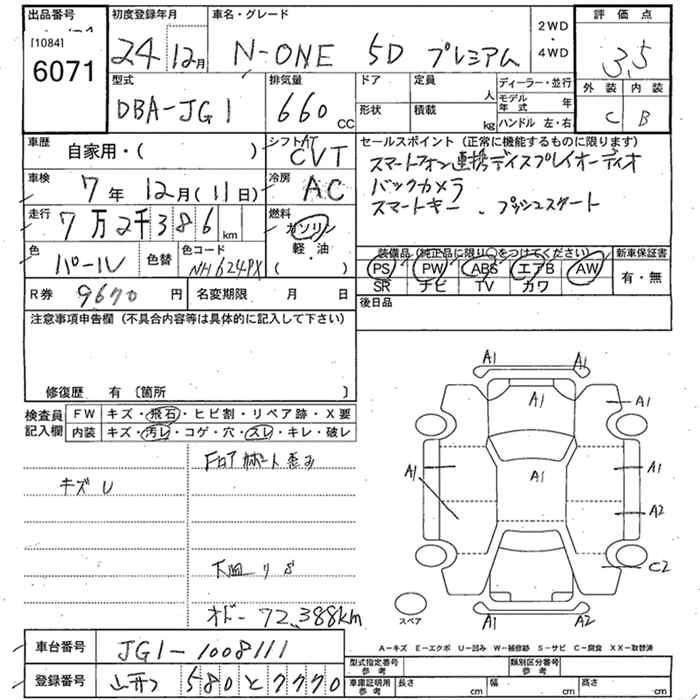 出品番号
[1084]
6071
初度登録年月
24年12月
車名・グレード
N-ONE 5D プレミアム
2WD
・
4WD
評価点
3.5
外装 内装
C B
型式
DBA-JG1
排気量
660 cc
ドア 定員 人
形状 積載 kg
ディーラー・並行
モデル年式 年
ハンドル 左・右
車歴
自家用・( )
シフト AT
CVT
セールスポイント (正常に機能するものに限ります)
スマートフォン連携ディスプレイオーディオ
バックカメラ
スマートキー、プッシュスタート
車検
7年 12月(11日)
冷房
AC
走行
7万2千386km
燃料
ガソリン
・
軽・油
( )
色
パール
色替
色コード
NH624PX
装備品 (純正品に限り○をつけてください)
PS PW ABS エアB AW
SR ナビ TV カワ
新車保証書
有・無
R券 9670 円
名変期限 月 日
後日品
注意事項申告欄 (不具合内容等は具体的に記入して下さい)
修復歴 有 〔箇所 〕
検査員記入欄
FW キズ・飛石・ヒビ割・リペア跡・X要
内装 キズ・汚レ・コゲ・穴・スレ・キレ・破レ
キズU
フロアサポート歪み
下皿リS
オドー 72,388km
A1 A1
A1 A1
A1 A1 A1
A2
C2
A1 A2
スペア
A-キズ E-エクボ U-凹み W-補修跡 S-サビ C-腐食 XX-取替済
車台番号
JG1-1008111
登録番号
580 と 7770
型式指定番号 参考
類別区分番号 参考
車庫証明用 参考
長さ cm 幅 cm 高さ cm